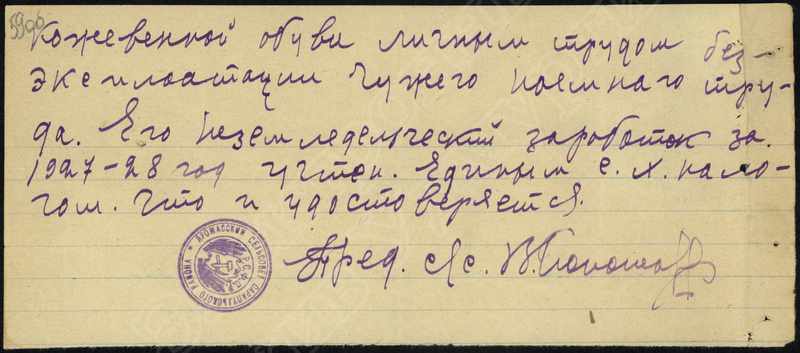 59 об
Кожевенной обуви личным трудом без-
эксплоатации чужего наемнаго тру-
да. Его неземледельческий заработок за
1927-28 год учтен. Единым с.х. нало-
гом. Что и удостоверяется.
Пред. с/с. В.
СЕЛЬСОВЕТ
САРАПУЛЬСКОГО РАЙОНА
Р.С.Ф.С.Р.